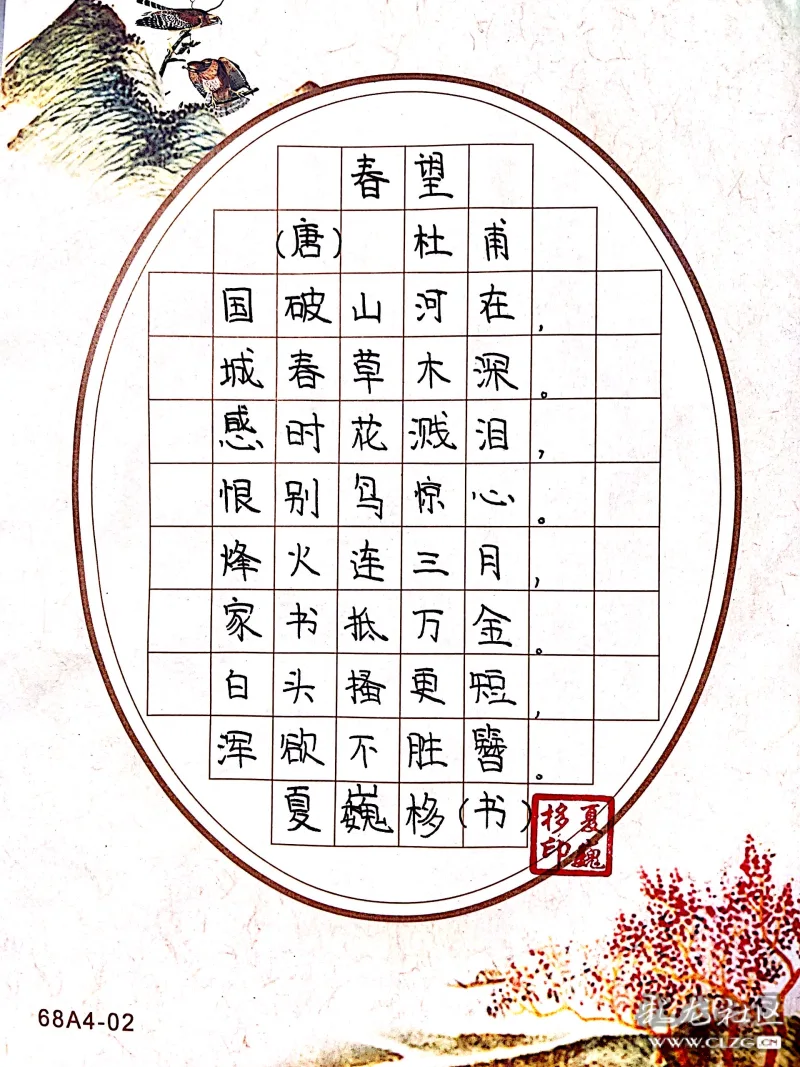 春望
(唐) 杜甫
国破山河在,
城春草木深。
感时花溅泪,
恨别鸟惊心。
烽火连三月,
家书抵万金。
白头搔更短,
浑欲不胜簪。
夏巍栘(书)
夏巍栘印
68A4-02
化龙社区
WWW.CLZG.CN